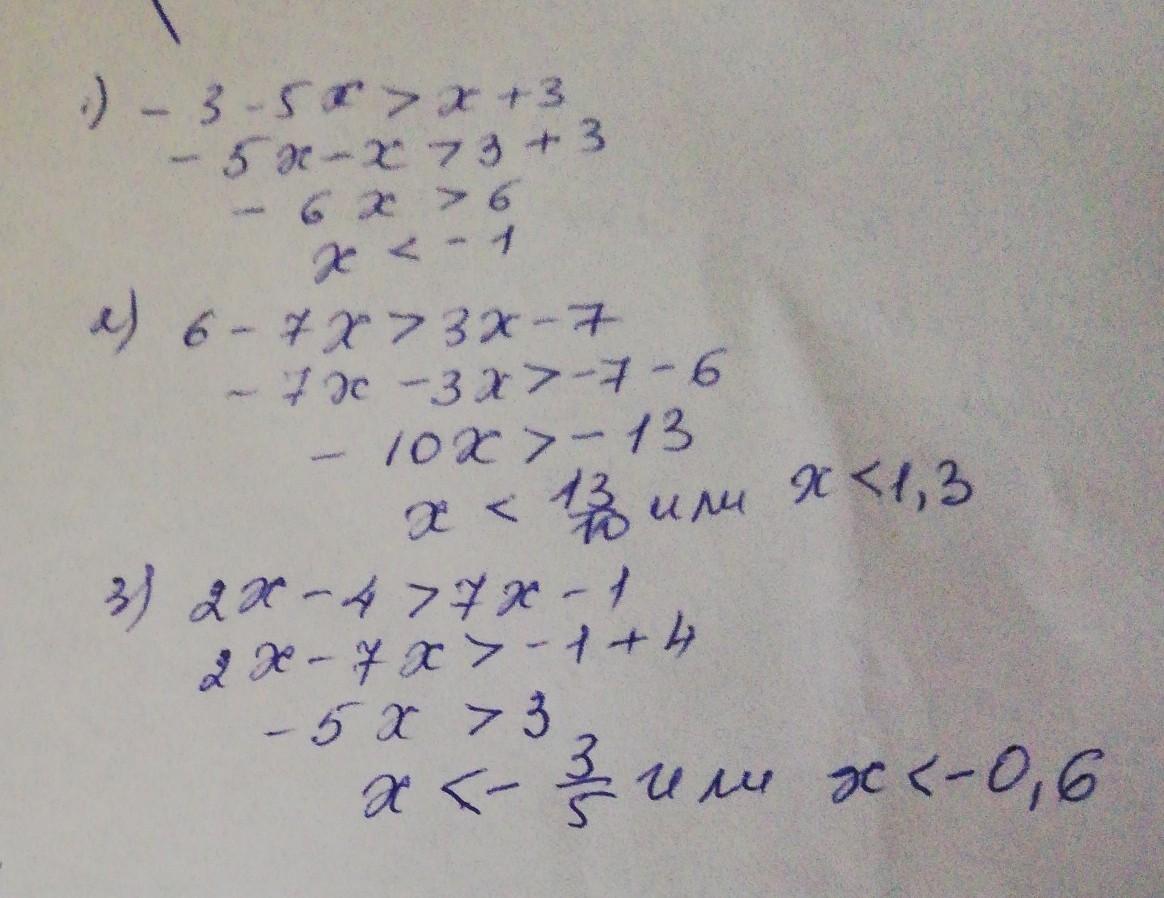 1) - 3 - 5x > x + 3
- 5x - x > 3 + 3
- 6x > 6
x < - 1
2) 6 - 7x > 3x - 7
- 7x - 3x > - 7 - 6
- 10x > - 13
x < 13/10 или x < 1,3
3) 2x - 4 > 7x - 1
2x - 7x > - 1 + 4
- 5x > 3
x < - 3/5 или x < - 0,6